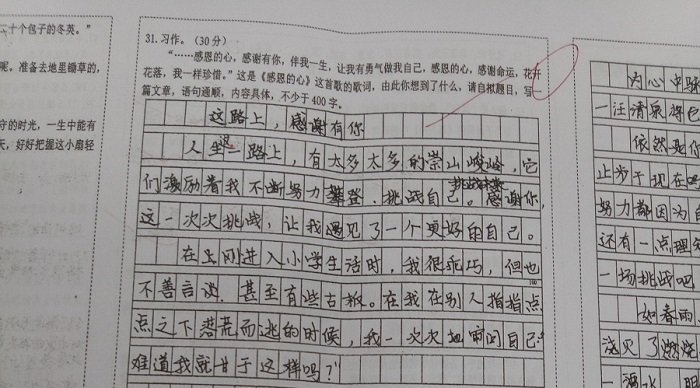 二十个包子的冬英。”
呢，准备去地里锄草的，
守的时光，一生中能有
天，好好把握这小扇轻
31. 习作。（30 分）
“……感恩的心，感谢有你，伴我一生，让我有勇气做我自己，感恩的心，感谢命运，花开
花落，我一样珍惜。”这是《感恩的心》这首歌的歌词，由此你想到了什么，请自拟题目，写一
篇文章，语句通顺，内容具体，不少于 400 字。
这路上，感谢有你
人生这一路上，有太多太多的崇山峻岭，它
们激励着我不断努力攀登，挑战自己。感谢你，
这一次次挑战，让我遇见了一个更好的自己。
在上刚进入小学生活时，我很乖巧，但也
不善言谈，甚至有些古板。在我在别人指指点
点之下落荒而逃的时候，我一次次地审问自己：“
难道我就甘于这样吗？”
内心中
一汪清泉
依然是你
止步于现在
努力都因为自
还有一点理
一场挑战吧
如春雨
浇灭了燃烧
一酒